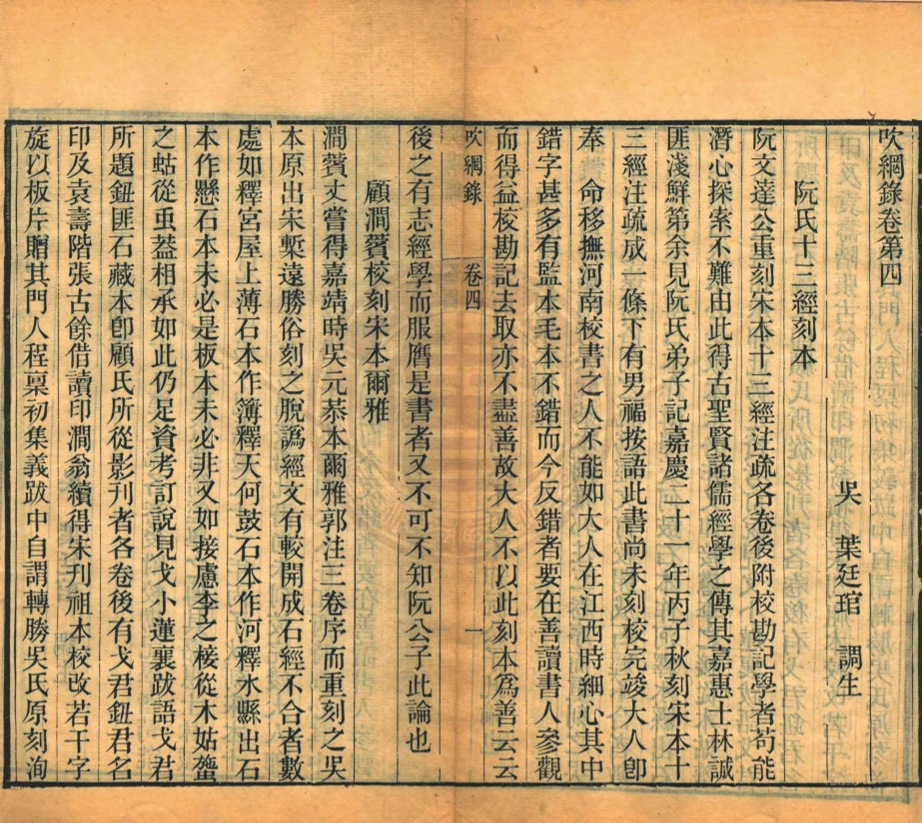 吹網錄卷第四
吳　葉廷琯　調生
阮氏十三經刻本
阮文達公重刻宋本十三經注疏各卷後附校勘記學者苟能
潛心探索不難由此得古聖賢諸儒經學之傳其嘉惠士林誠
匪淺鮮第余見阮氏弟子記嘉慶二十一年丙子秋刻宋本十
三經注疏成一條下有男福按語此書尚未刻校完竣大人卽
奉　命移撫河南校書之人不能如大人在江西時細心其中
錯字甚多有監本毛本不錯而今反錯者要在善讀書人參觀
而得益校勘記去取亦不盡善故大人不以此刻本爲善云云
吹網錄　卷四　一
後之有志經學而服膺是書者又不可不知阮公子此論也
顧澗薲校刻宋本爾雅
澗薲丈嘗得嘉靖時吳元恭本爾雅郭注三卷序而重刻之吳
本原出宋槧遠勝俗刻之脫譌經文有較開成石經不合者數
處如釋宮屋上薄石本作簿釋天何鼓石本作河釋水縣出石
本作懸石本未必是板本未必非又如接慮李之椄從木姑䗐
之蛄從虫葢相承如此仍足資考訂說見戈小蓮襄跋語戈君
所題鈕匪石藏本卽顧氏所從影刊者各卷後有戈君鈕君名
印及袁壽階張古餘借讀印澗翁續得宋刊祖本校改若干字
旋以板片贈其門人程稟初集義跋中自謂轉勝吳氏原刻洵